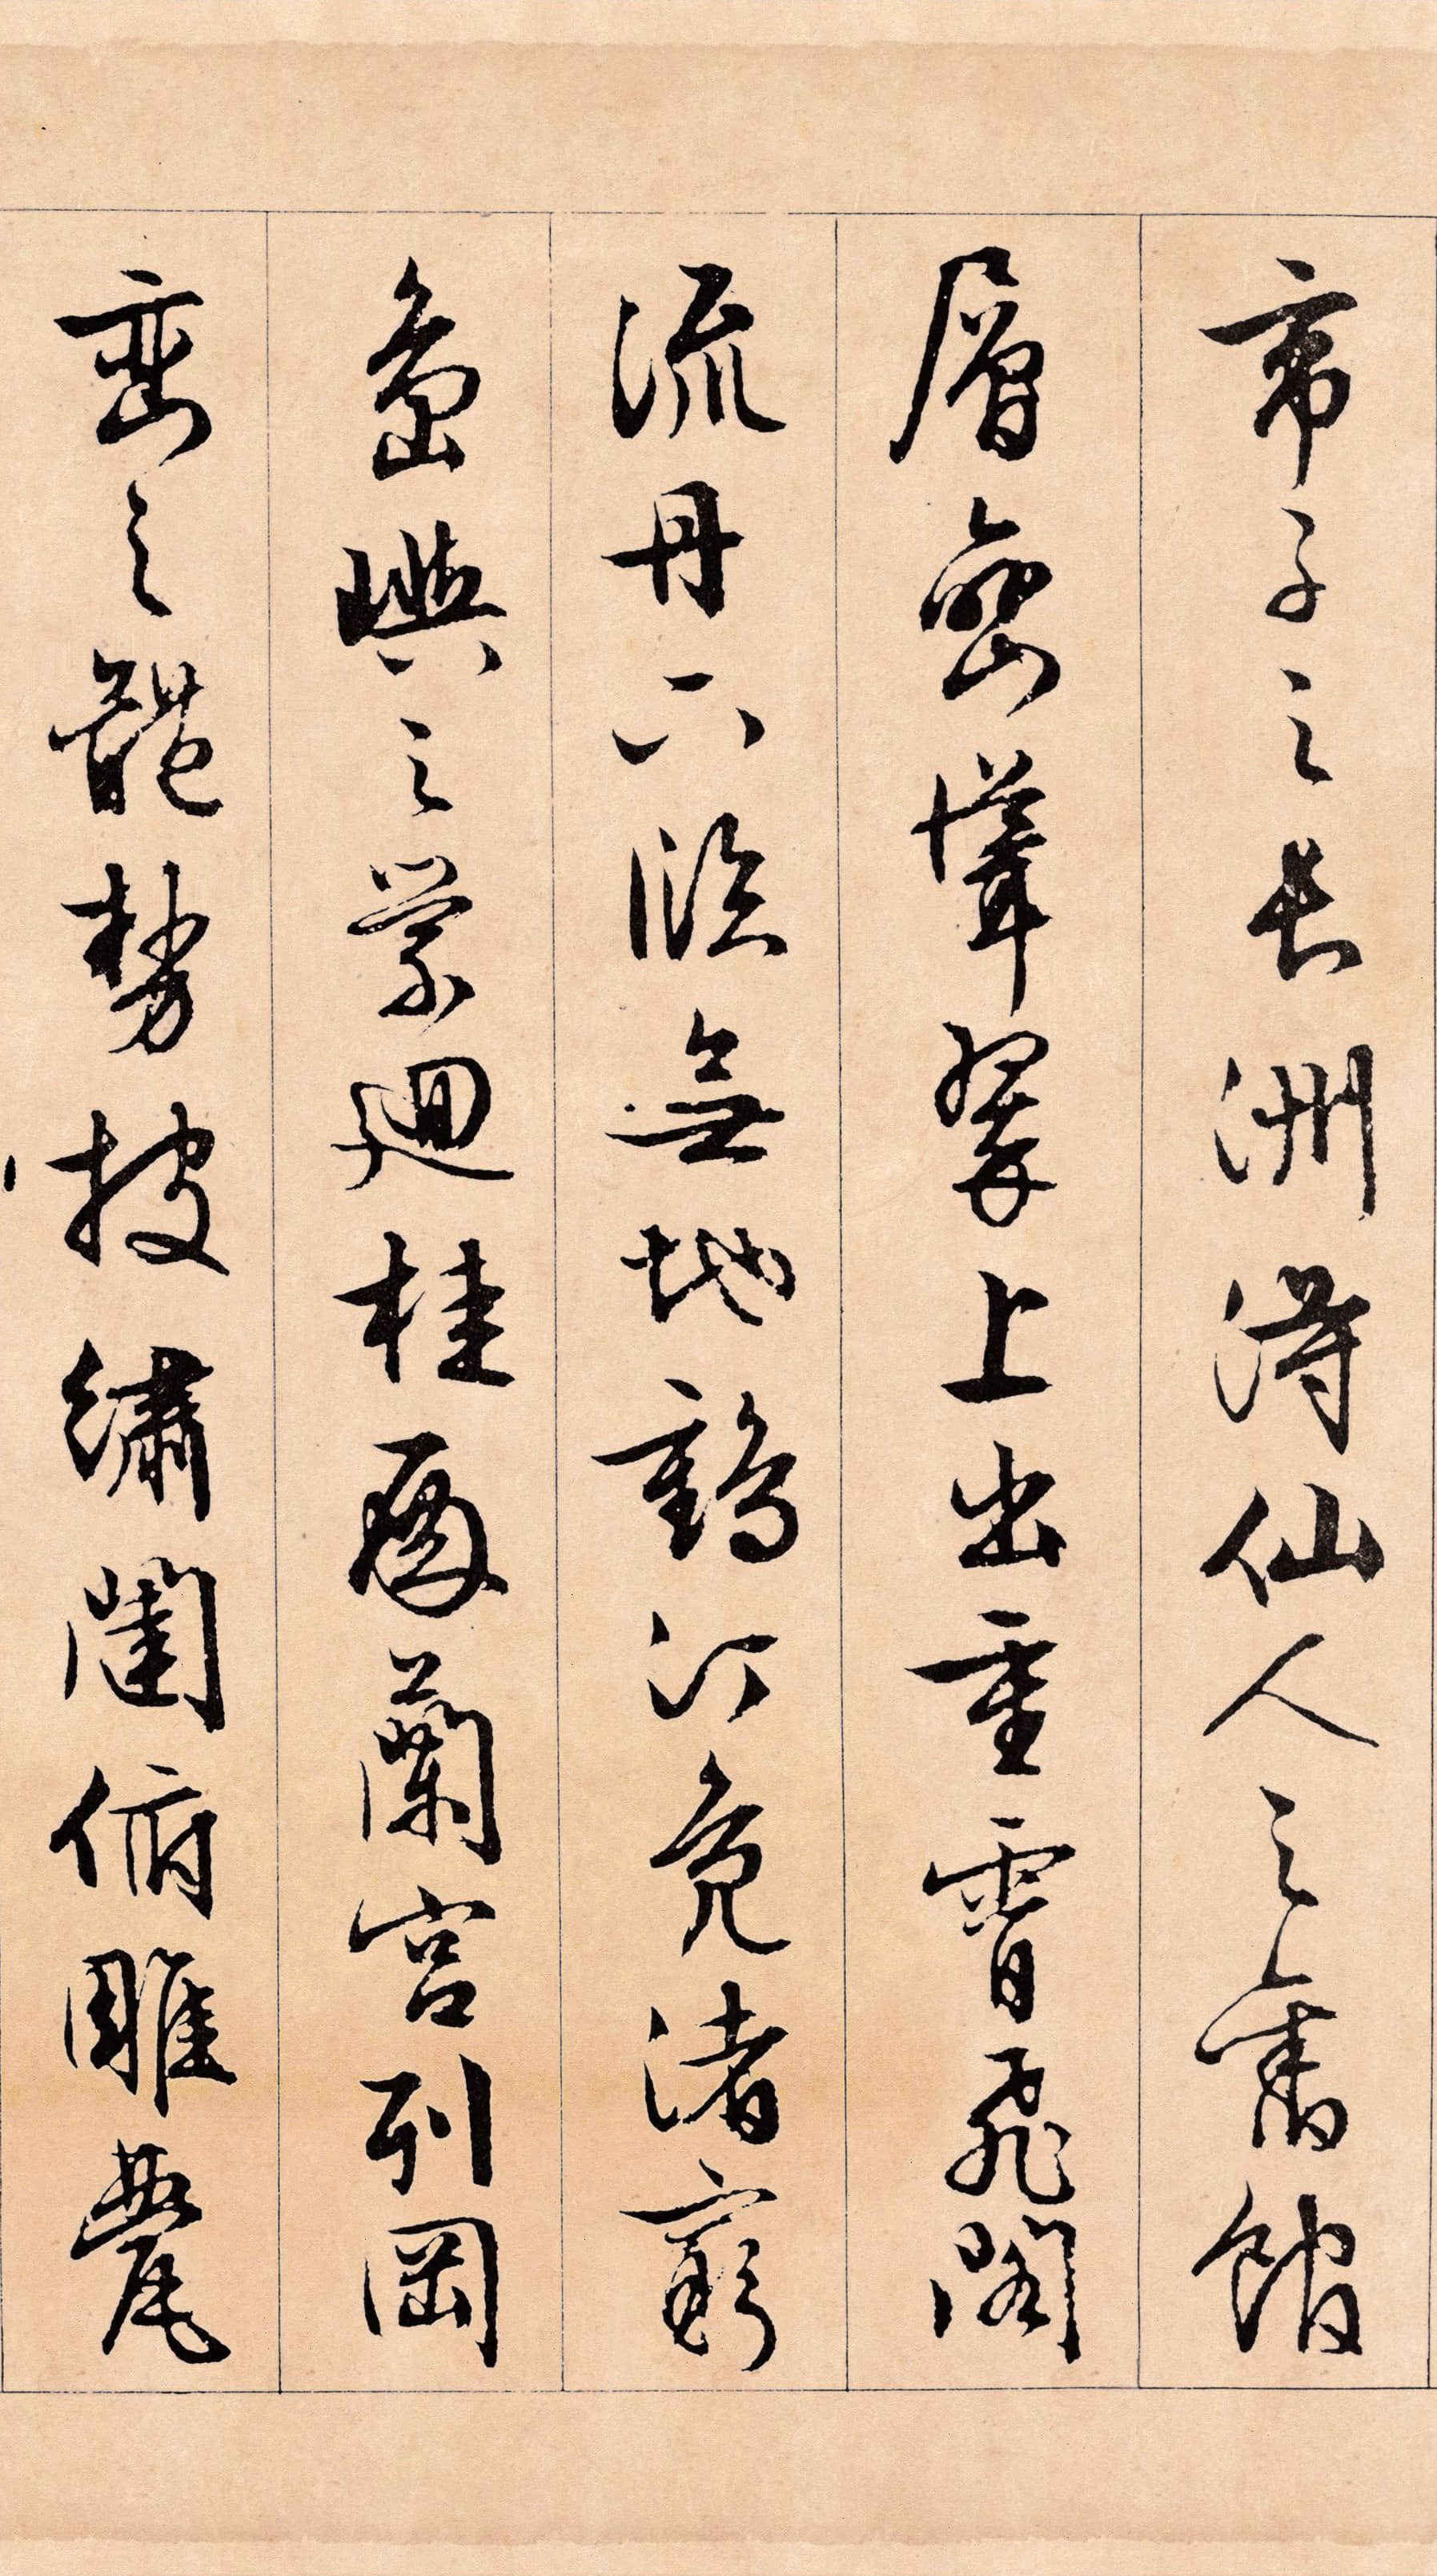 帝子之長洲得仙人之舊館
層巒聳翠上出重霄飛閣
流丹下臨無地鶴汀鳧渚窮
島嶼之縈廻桂殿蘭宮列岡
巒之體勢披繡闥俯雕甍